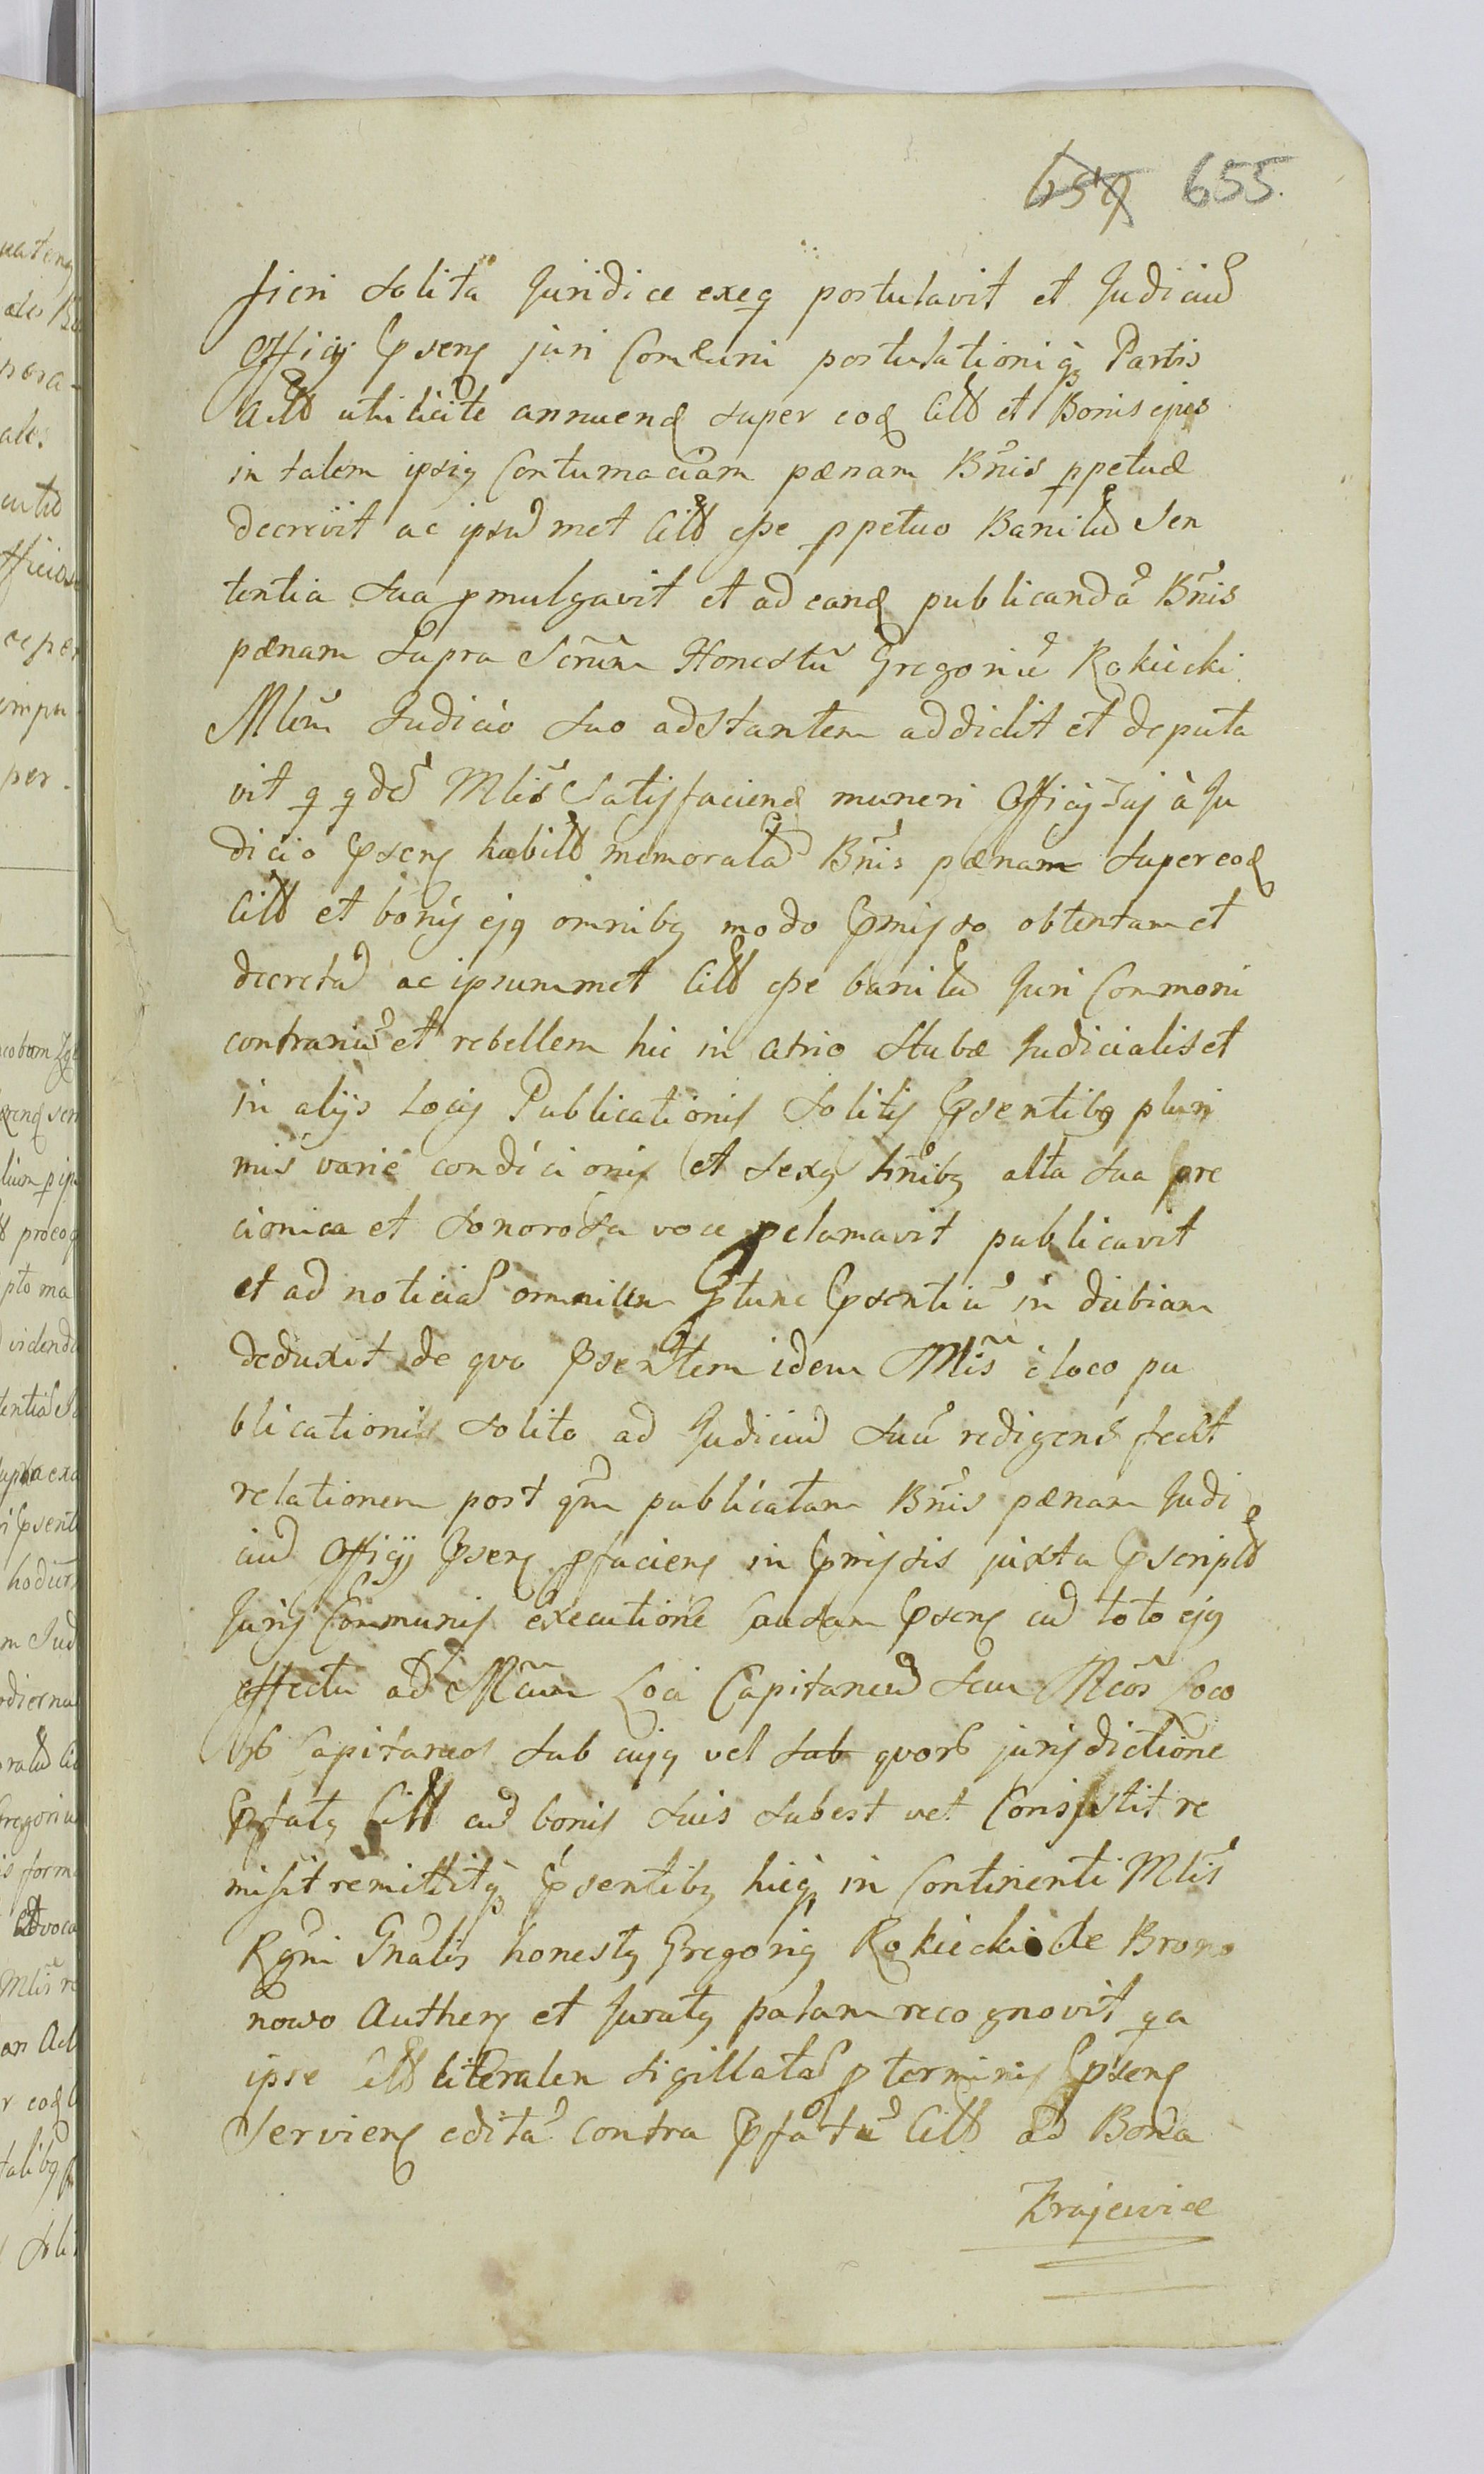 655.
fieri solita Juridice exeq postulavit et Judiciũ
Officij pñsens juri Com̃uni postulationiq̃ Partis
Act̃ uti licite annuend super eod Cit̃ et Bonis ejus
in talem ipsius Contumaciam pœnam Bñis ppetuæ
decrevit ac ipsũmet Cit̃ esse ppetuo Banitũ Sen
tentia sua pmulgavit et ad eand publicandã Bñis
pœnam Supra Scrũm Honestũ Gregoriũ Rokicki
Mlem̃ Judicio suo adstantem addidit et deputa
vit q qdẽ Mlis̃ Satisfaciend muneri Officij sui à Ju
dicio pñsens habit̃ memoratã Bñis pœnam super eod
Cit̃ et bonis ejus omnibus modo pmisso obtentam et
decretã ac ipsummet Cit̃ esse banitũ Juri Commoni
contrariũ et rebellem hic in atrio Stubæ Judicialis et
in alijs Locis Publicationis Solitis psentibus pluri
mis varie condicionis et sexus hñibus alta sua pre
cionica et sonorosa voce pclamavit publicavit
et ad noticiã omnium ptunc psentiũ in dubiam
deduxit de quo psentem idem Mlis̃ è loco pu
blicationis solito ad Judiciũ suũ redigens fecit
relationem post qm̃ publicatam Bñis pœnam Judi
ciũ Officij psens pfaciens in pmissis juxta pscript̃
Juris Communis executione Causam psens cũ toto ejus
effectu ad Mc̃um Loci Capitaneũ seu Mc̃os Loco
rũ Capitaneos sub cujus vel sub quorũ jurisdictione
pfatus Cit̃ cũ bonis suis subest vel Consistit re
misit remittitq̃ psentibus hicq̃ in Continenti Mlis̃
Rgñi Gñalis honestus Gregorius Rokicki de Brono
nowo Authens et Juratus palam recognovit qa
ipse Cit̃ literalem sigillatã p terminis psens
Serviens editã contra pfatũ Cit̃ ad Bona
Krajewice